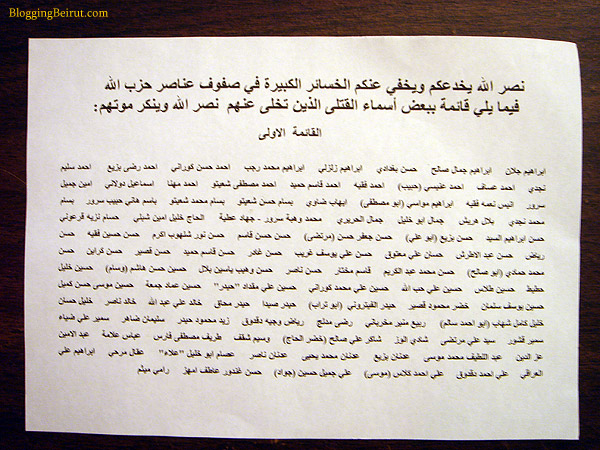 BloggingBeirut.com
نصر الله يخدعكم ويخفي عنكم الخسائر الكبيرة في صفوف عناصر حزب الله
فيما يلي قائمة ببعض أسماء القتلى الذين تخلى عنهم نصر الله وينكر موتهم:
القائمة الاولى
ابراهيم جلان ابراهيم جمال صالح حسن بغدادي ابراهيم زلزلي ابراهيم محمد رجب احمد حسن كوراني احمد رضى بزيع احمد سليم
نجدي احمد عساف احمد عنيسي (حبيب) احمد فقيه احمد قاسم حميد احمد مصطفى شعيتو احمد مهنا اسماعيل دولاني امين جميل
سرور انيس نعمه فقيه ابراهيم مواسي (ابو مصطفى) ايهاب شاوي بسام حسن شعيتو بسام محمد شعيتو باسم هاني حبيب سرور بسام
محمد نجدي بلال هريش جمال ابو خليل جمال الحريري محمد وهبة سرور - جهاد عطية الحاج خليل امين شبلي حسام نزيه فرعوني
حسن ابراهيم السيد حسن بزيع (ابو علي) حسن جعفر حسن (مرتضى) حسن حسن قاسم حسن نور شلهوب اكرم حسن حسين فقيه حسن
رياض حسن عبد الاطرش حسان علي معتوق حسن علي يوسف غريب حسن غادر حسن قاسم حميد حسن قصير حسن كراين حسن
محمد حمادي (ابو صالح) حسن محمد عبد الكريم قاسم مختار حسن ناصر حسن وهيب ياسين بلال حسين حسن هاشم (وسام) حسين خليل
حطيط حسين طلاس حسين علي حب الله حسين علي محمد كوراني حسين علي مقداد "حيدر" حسين عماد جمعة حسين موسى حسن كميل
حسين يوسف سلمان خضر محمود قصير حيدر الفيتروني (ابوتراب) حيدر صيدا حيدر محاق خالد علي عبد الله خالد ناصر خليل حسان
خليل كامل شهاب (ابو احمد سالم) ربيع منير مخريشي رضى مدلج رياض وجيه دقدوق زيد محمود حيدر سليمان ضاهر سمير علي ضياء
سمير قشور سيد علي مرتضى شادي الوز شاكر علي صالح (خضر الحاج) وسيم شقف طريف مصطفى فارس عباس علامة عبد الامين
عز الدين عبد اللطيف محمد موسى عدنان بزيع عدنان محمد يحيى عدنان ناصر عصام ابو خليل "علاء" عقال مرحي ابراهيم علي
العراقي علي احمد دقدوق علي احمد كلاس (موسى) علي جميل حسين (جواد) حسن غندور عاطف امهز رامي ميثم